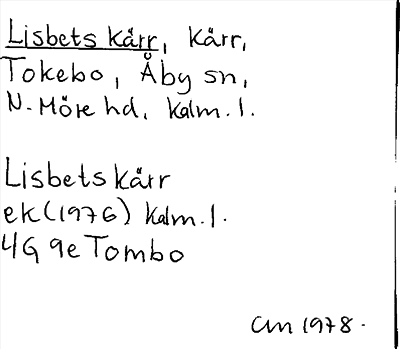 Lisbets kärr, Kärr,
Tokebo, Åby sn,
N. Möre hd, Kalm. l.
Lisbets kärr
ek (1976) Kalm. l.
4G 9e Tombo
CM 1978.